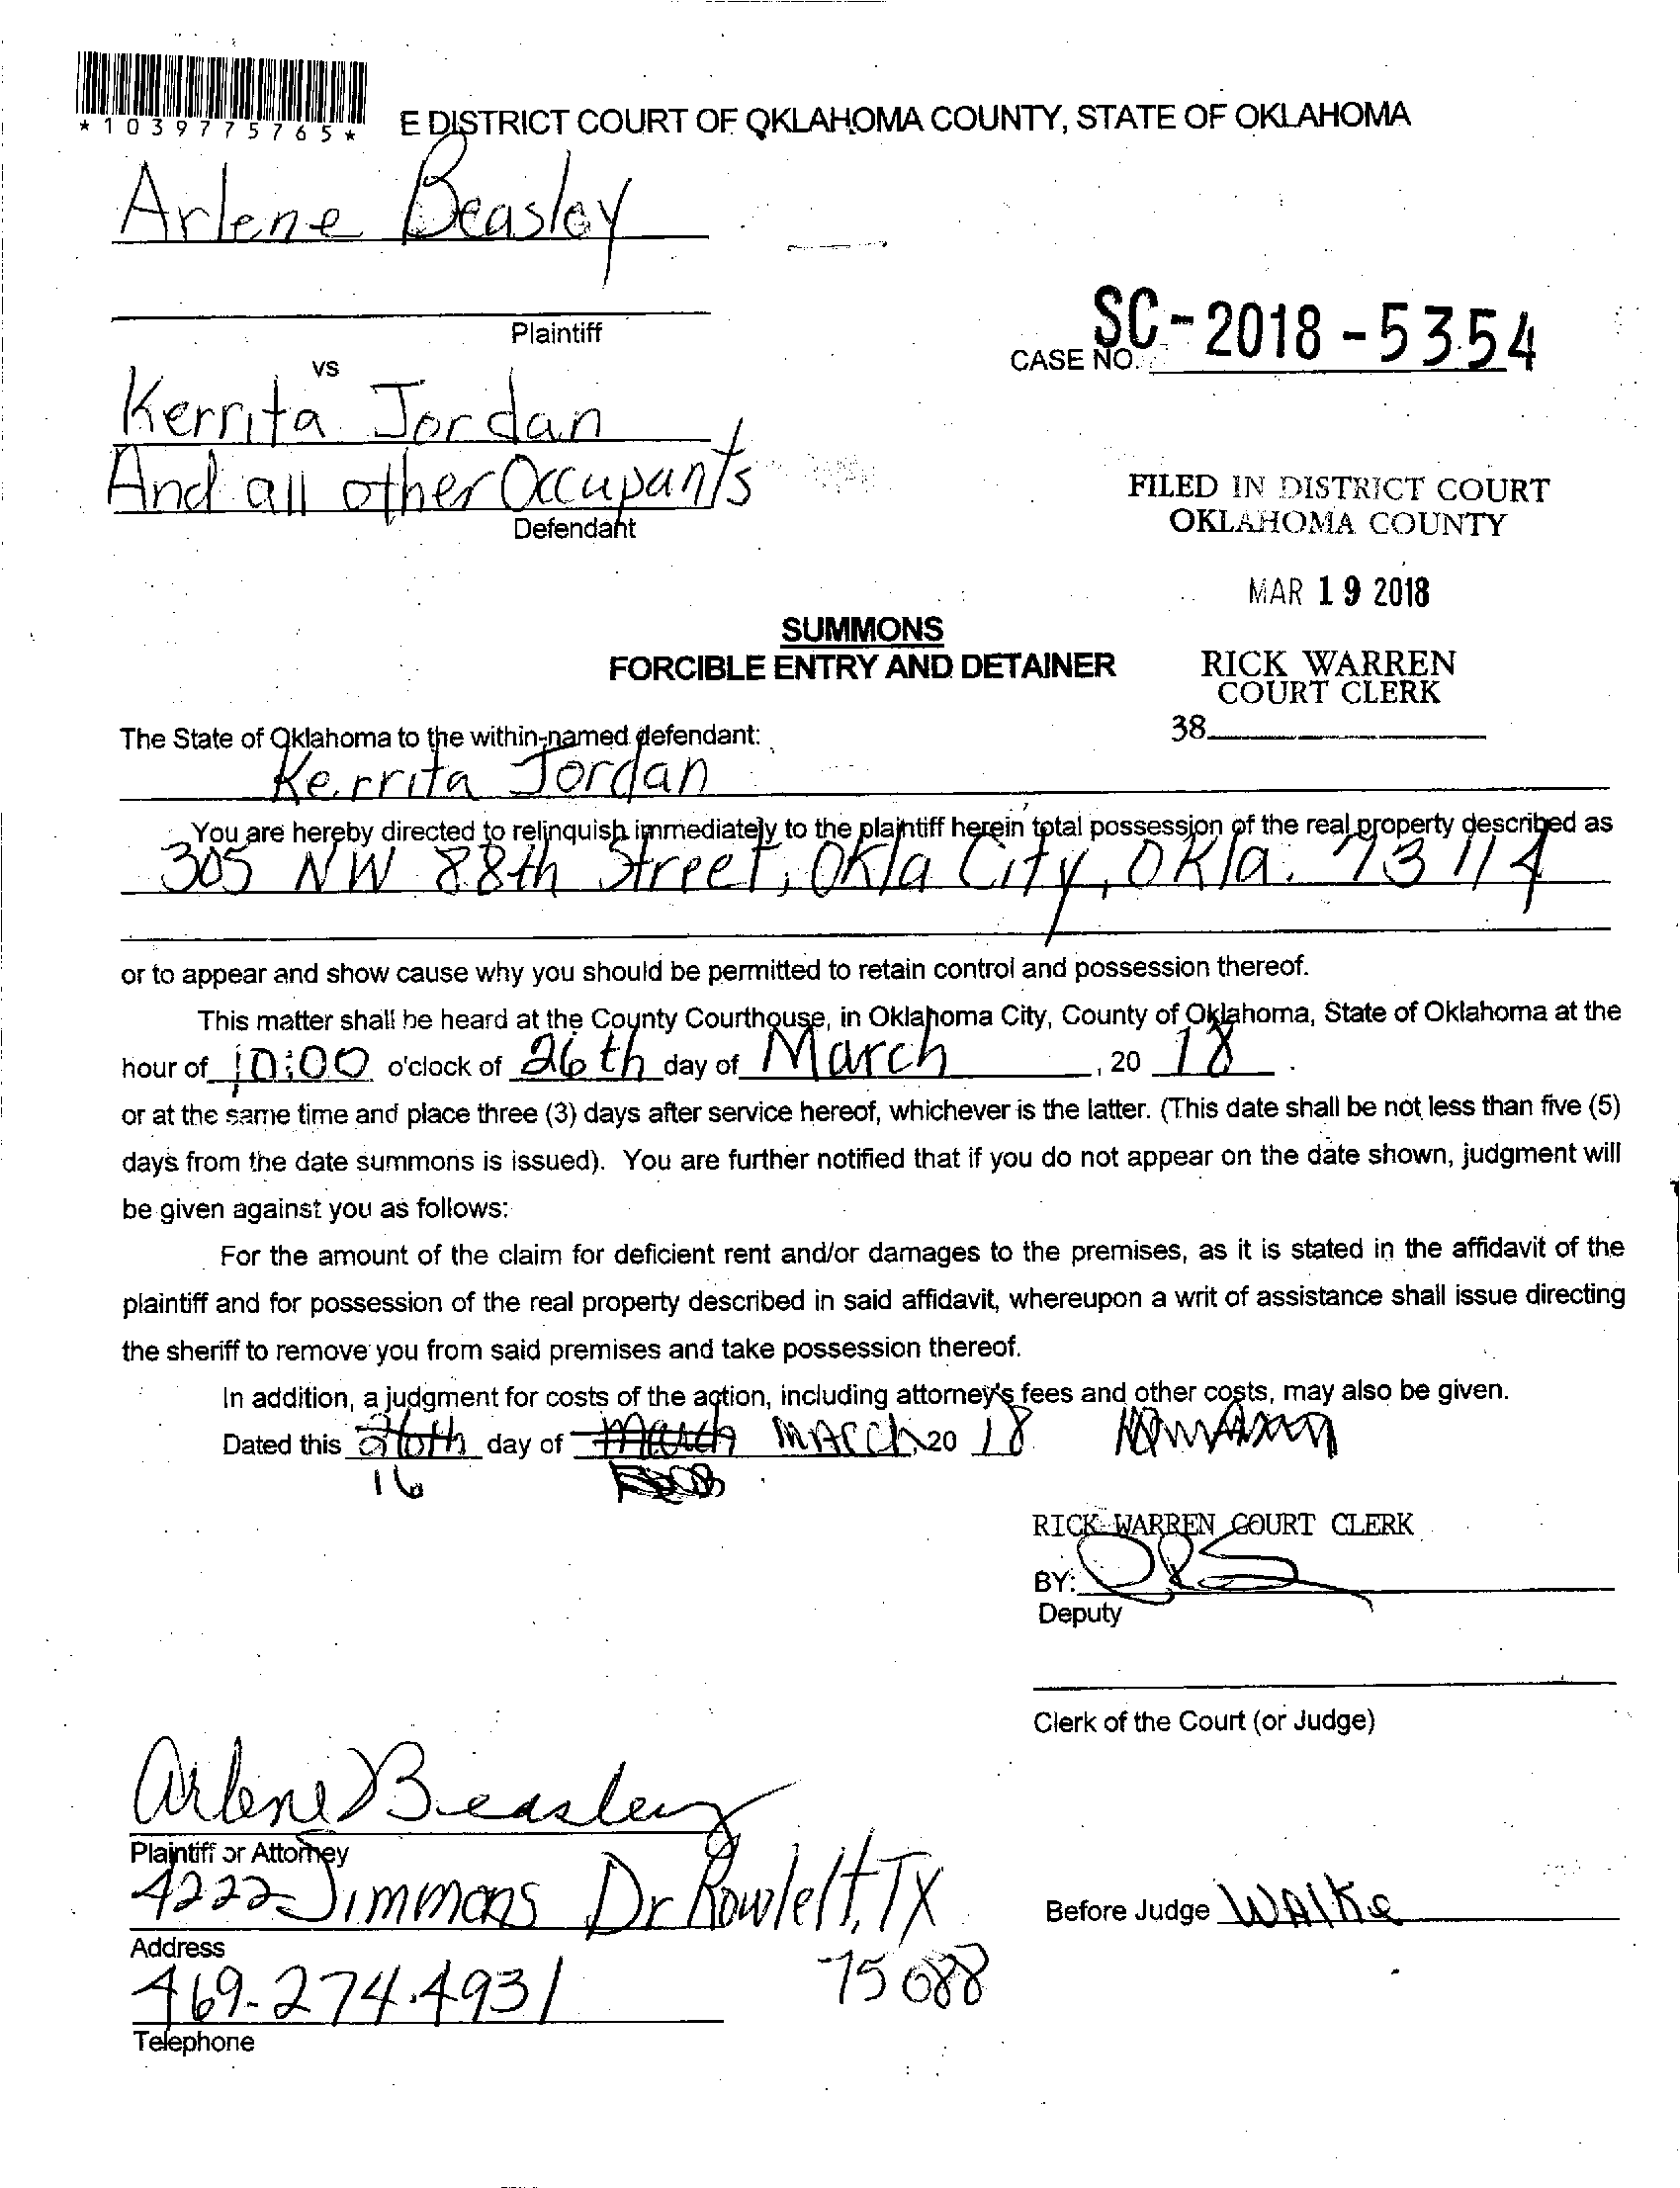 *1039775765*
E DISTRICT COURT OF OKLAHOMA COUNTY, STATE OF OKLAHOMA
Arlene Beasley
Plaintiff
vs
CASE NO. SC-2018-5354
Kerrita Jordan
And all other Occupants
Defendant
FILED IN DISTRICT COURT
OKLAHOMA COUNTY
MAR 19 2018
SUMMONS
FORCIBLE ENTRY AND DETAINER
RICK WARREN
COURT CLERK
38
The State of Oklahoma to the within-named defendant:
Kerrita Jordan
You are hereby directed to relinquish immediately to the plaintiff herein total possession of the real property described as
305 NW 88th Street, Okla City, Okla. 73114
or to appear and show cause why you should be permitted to retain control and possession thereof.
This matter shall be heard at the County Courthouse, in Oklahoma City, County of Oklahoma, State of Oklahoma at the
hour of 10:00 o'clock of 26th day of March, 20 18.
or at the same time and place three (3) days after service hereof, whichever is the latter. (This date shall be not less than five (5)
days from the date summons is issued). You are further notified that if you do not appear on the date shown, judgment will
be given against you as follows:
For the amount of the claim for deficient rent and/or damages to the premises, as it is stated in the affidavit of the
plaintiff and for possession of the real property described in said affidavit, whereupon a writ of assistance shall issue directing
the sheriff to remove you from said premises and take possession thereof.
In addition, a judgment for costs of the action, including attorney's fees and other costs, may also be given.
Dated this 26th day of March March 20 18
16
RICK WARREN COURT CLERK
BY:
Deputy
Clerk of the Court (or Judge)
Arlene Beasley
Plaintiff or Attorney
4222 Simmons Dr Rowlett, TX
75088
Address
Before Judge Walke
469-274-4931
Telephone